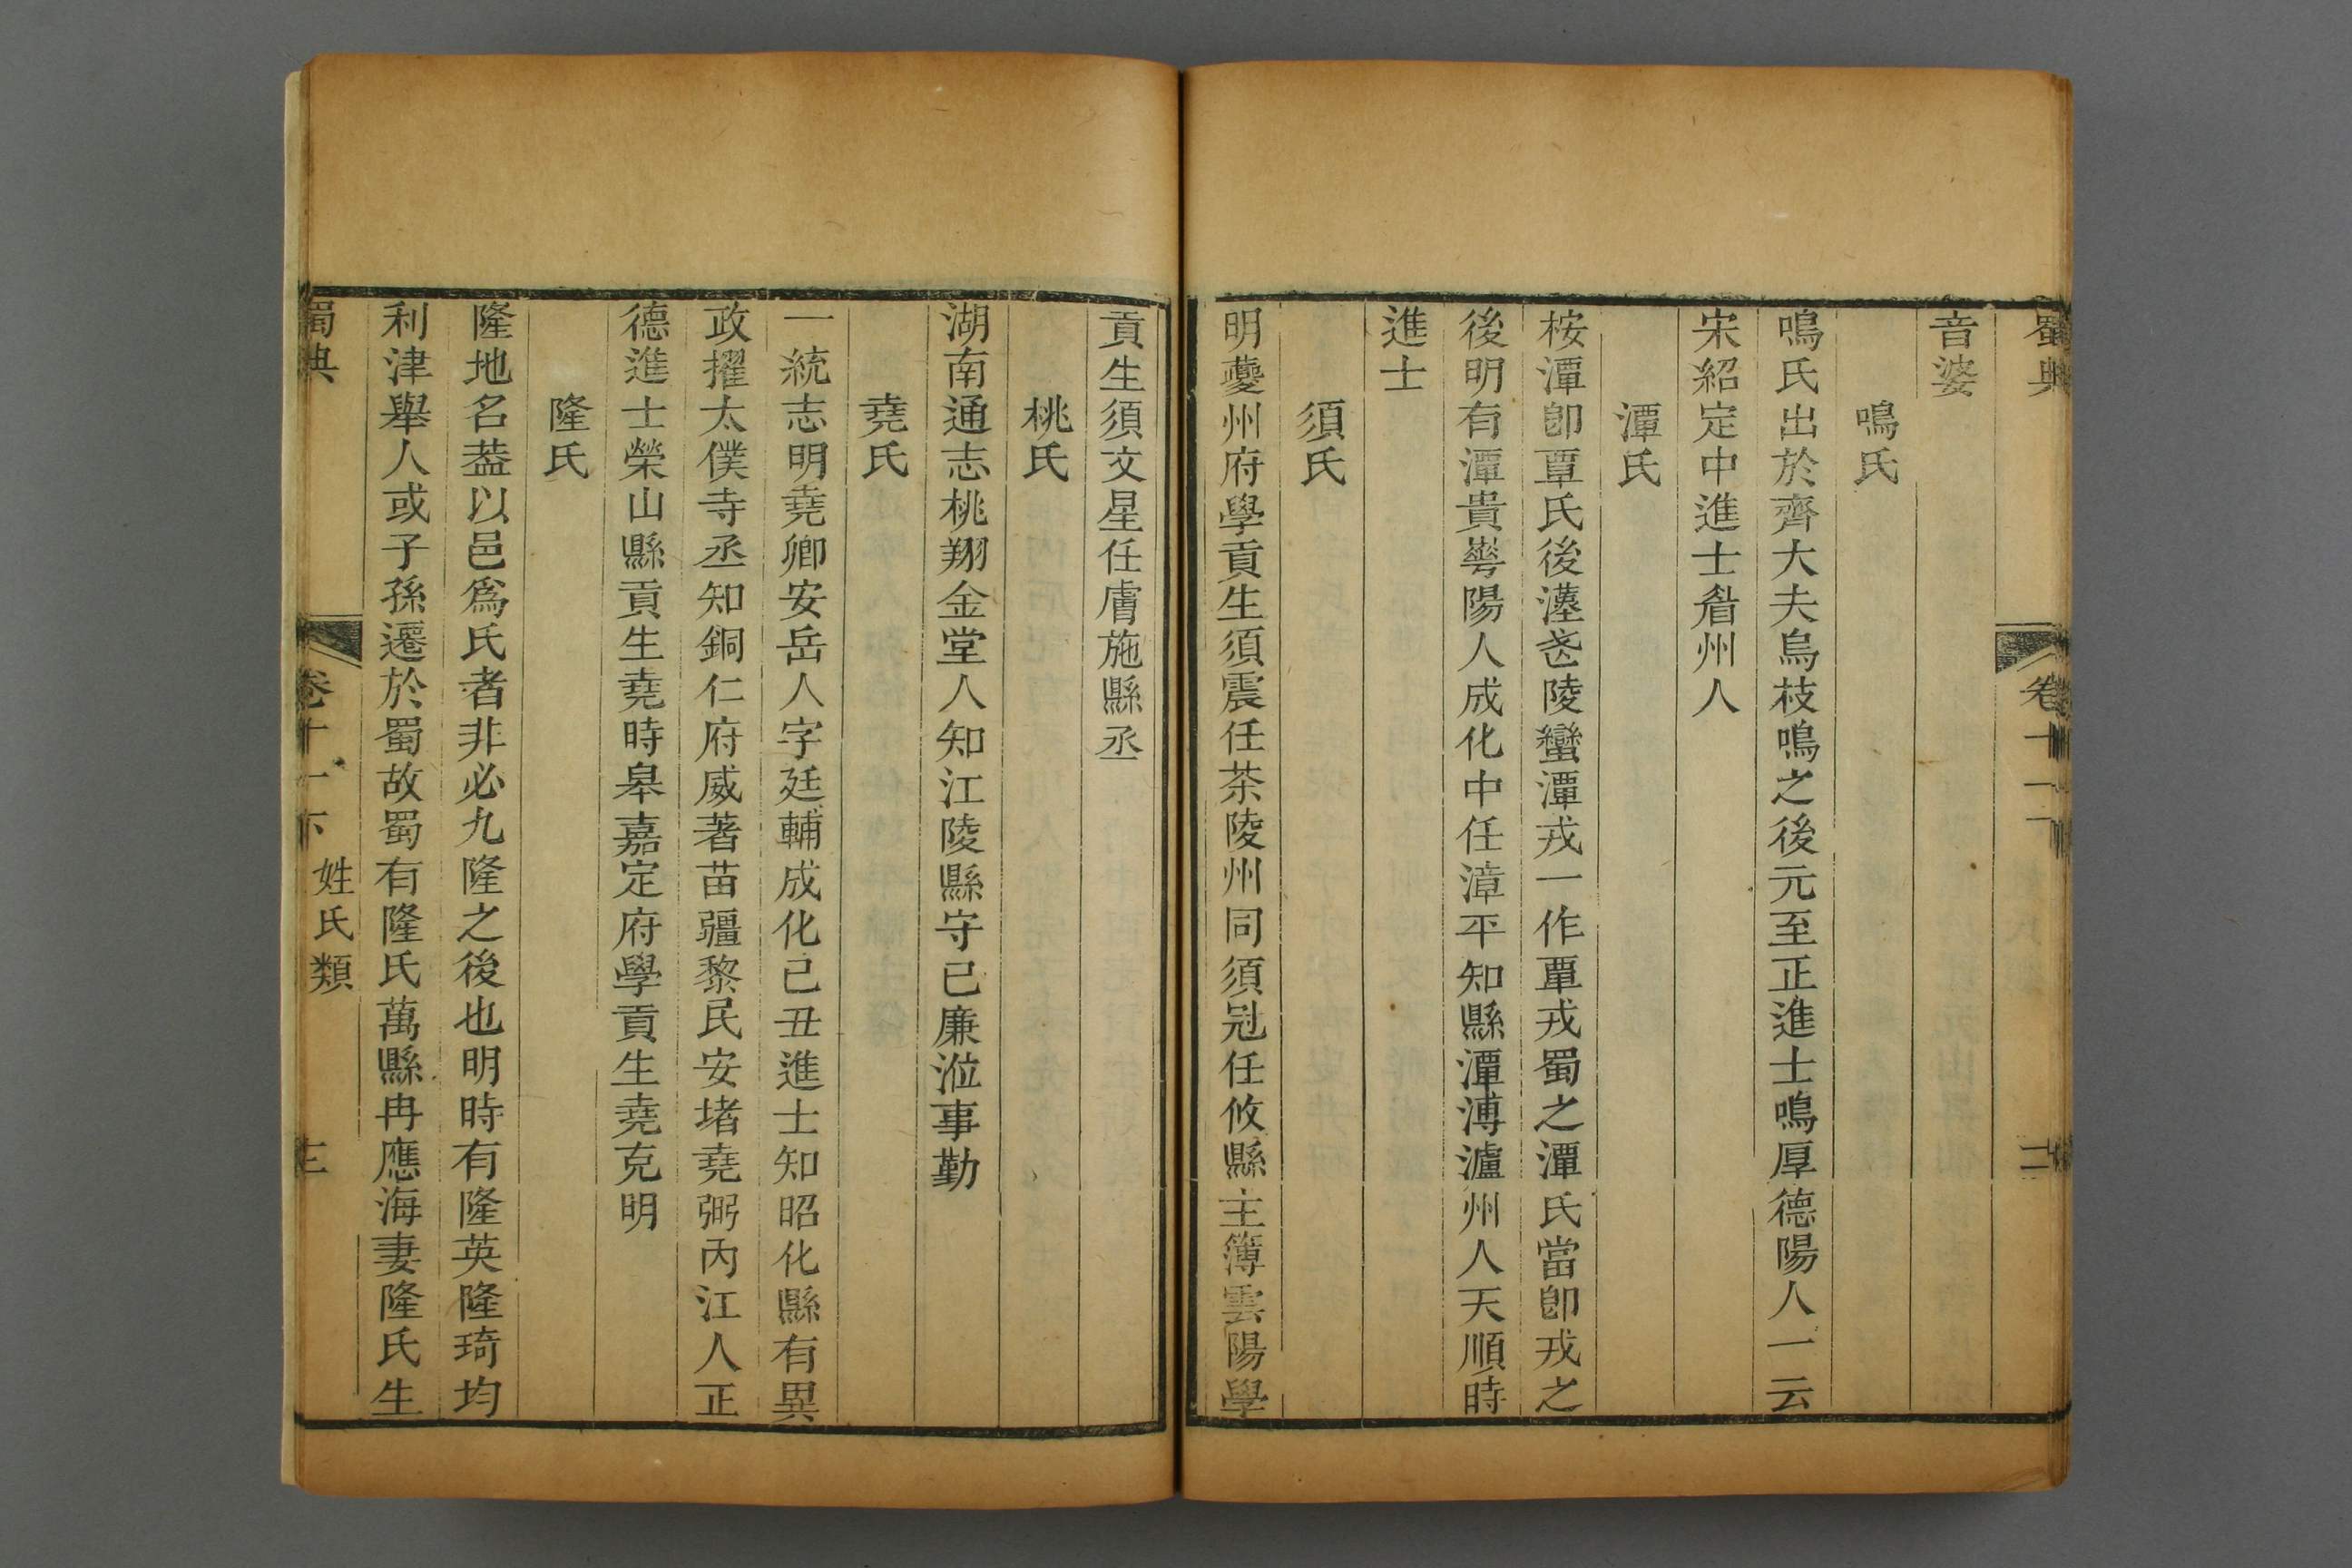 蜀典 卷十一下 二
音婆
鳴氏
鳴氏出於齊大夫烏枝鳴之後元至正進士鳴厚德陽人一云
宋紹定中進士眉州人
潭氏
桉潭卽覃氏後漢武陵蠻潭戎一作覃戎蜀之潭氏當卽戎之
後明有潭貴崿陽人成化中任漳平知縣潭溥瀘州人天順時
進士
須氏
明夔州府學貢生須震任茶陵州同須冠任攸縣主簿雲陽學
貢生須文星任膚施縣丞
桃氏
湖南通志桃翔金堂人知江陵縣守己廉涖事勤
堯氏
一統志明堯卿安岳人字廷輔成化己丑進士知昭化縣有異
政擢太僕寺丞知銅仁府威著苗疆黎民安堵堯弼內江人正
德進士榮山縣貢生堯時皋嘉定府學貢生堯克明
隆氏
隆地名葢以邑爲氏者非必九隆之後也明時有隆英隆琦均
利津舉人或子孫遷於蜀故蜀有隆氏萬縣冉應海妻隆氏生
蜀典 卷十一下 姓氏類 三